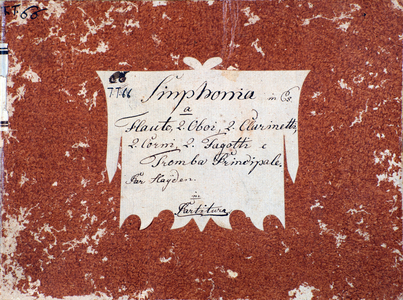 TT.66.
66
TT66
Sinphonia in Es
a
Flauto, 2. Oboi, 2. Clarinetti,
2. Corni, 2. Fagotti e
Tromba Principale.
Par Hayden.
in
Partitura